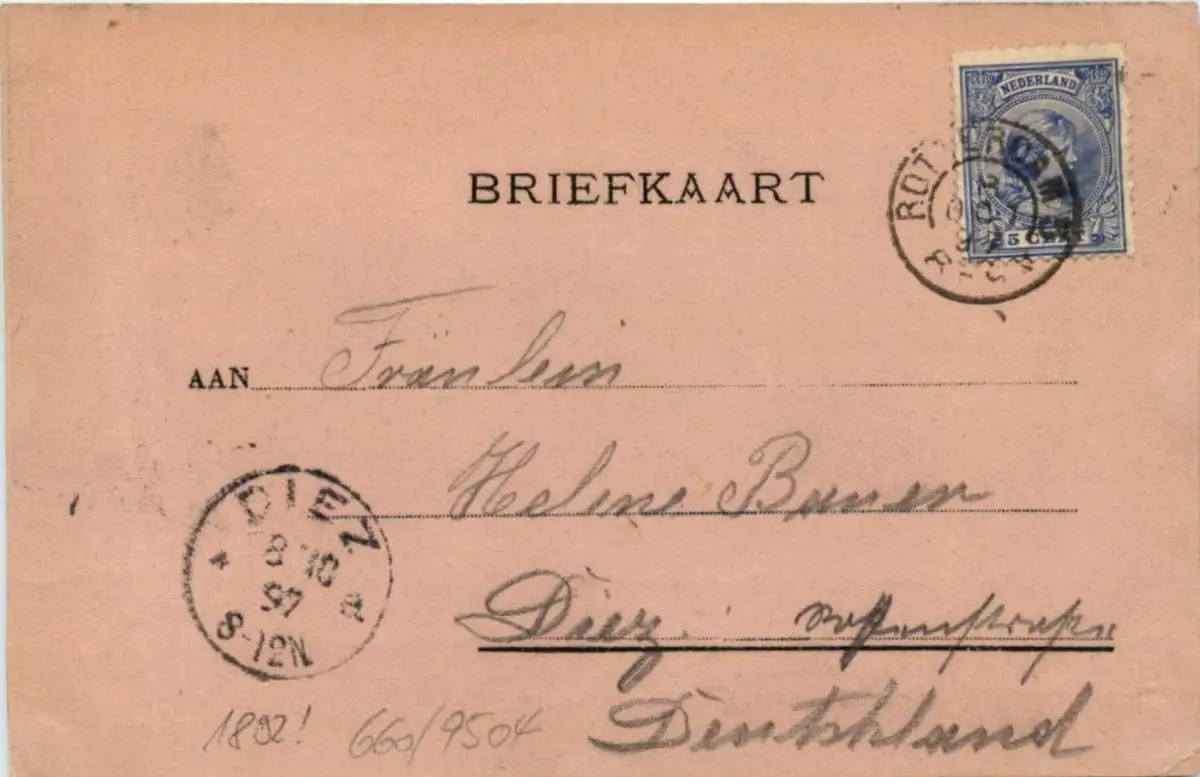 BRIEFKAART
NEDERLAND
5 CENT
ROTTERDAM
AAN Fräulein
Helene Bauer
Diez.
Deutschland
DIEZ
8 10
97
8-12N
1892! 660/9504